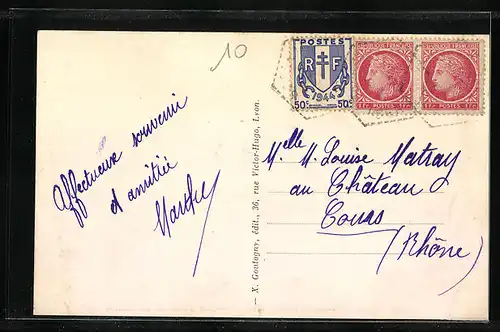 10
POSTES
RF
1944
50c 50c
REPUBLIQUE FRANÇAISE REPUBLIQUE FRANÇAISE
1F POSTES 1F 1F POSTES 1F
Affectueux souvenir
et amitié
Marthe
— X. Goutagny, édit., 36, rue Victor-Hugo, Lyon.
Melle M. Louise Matray
au Château
Cours
(Rhône)